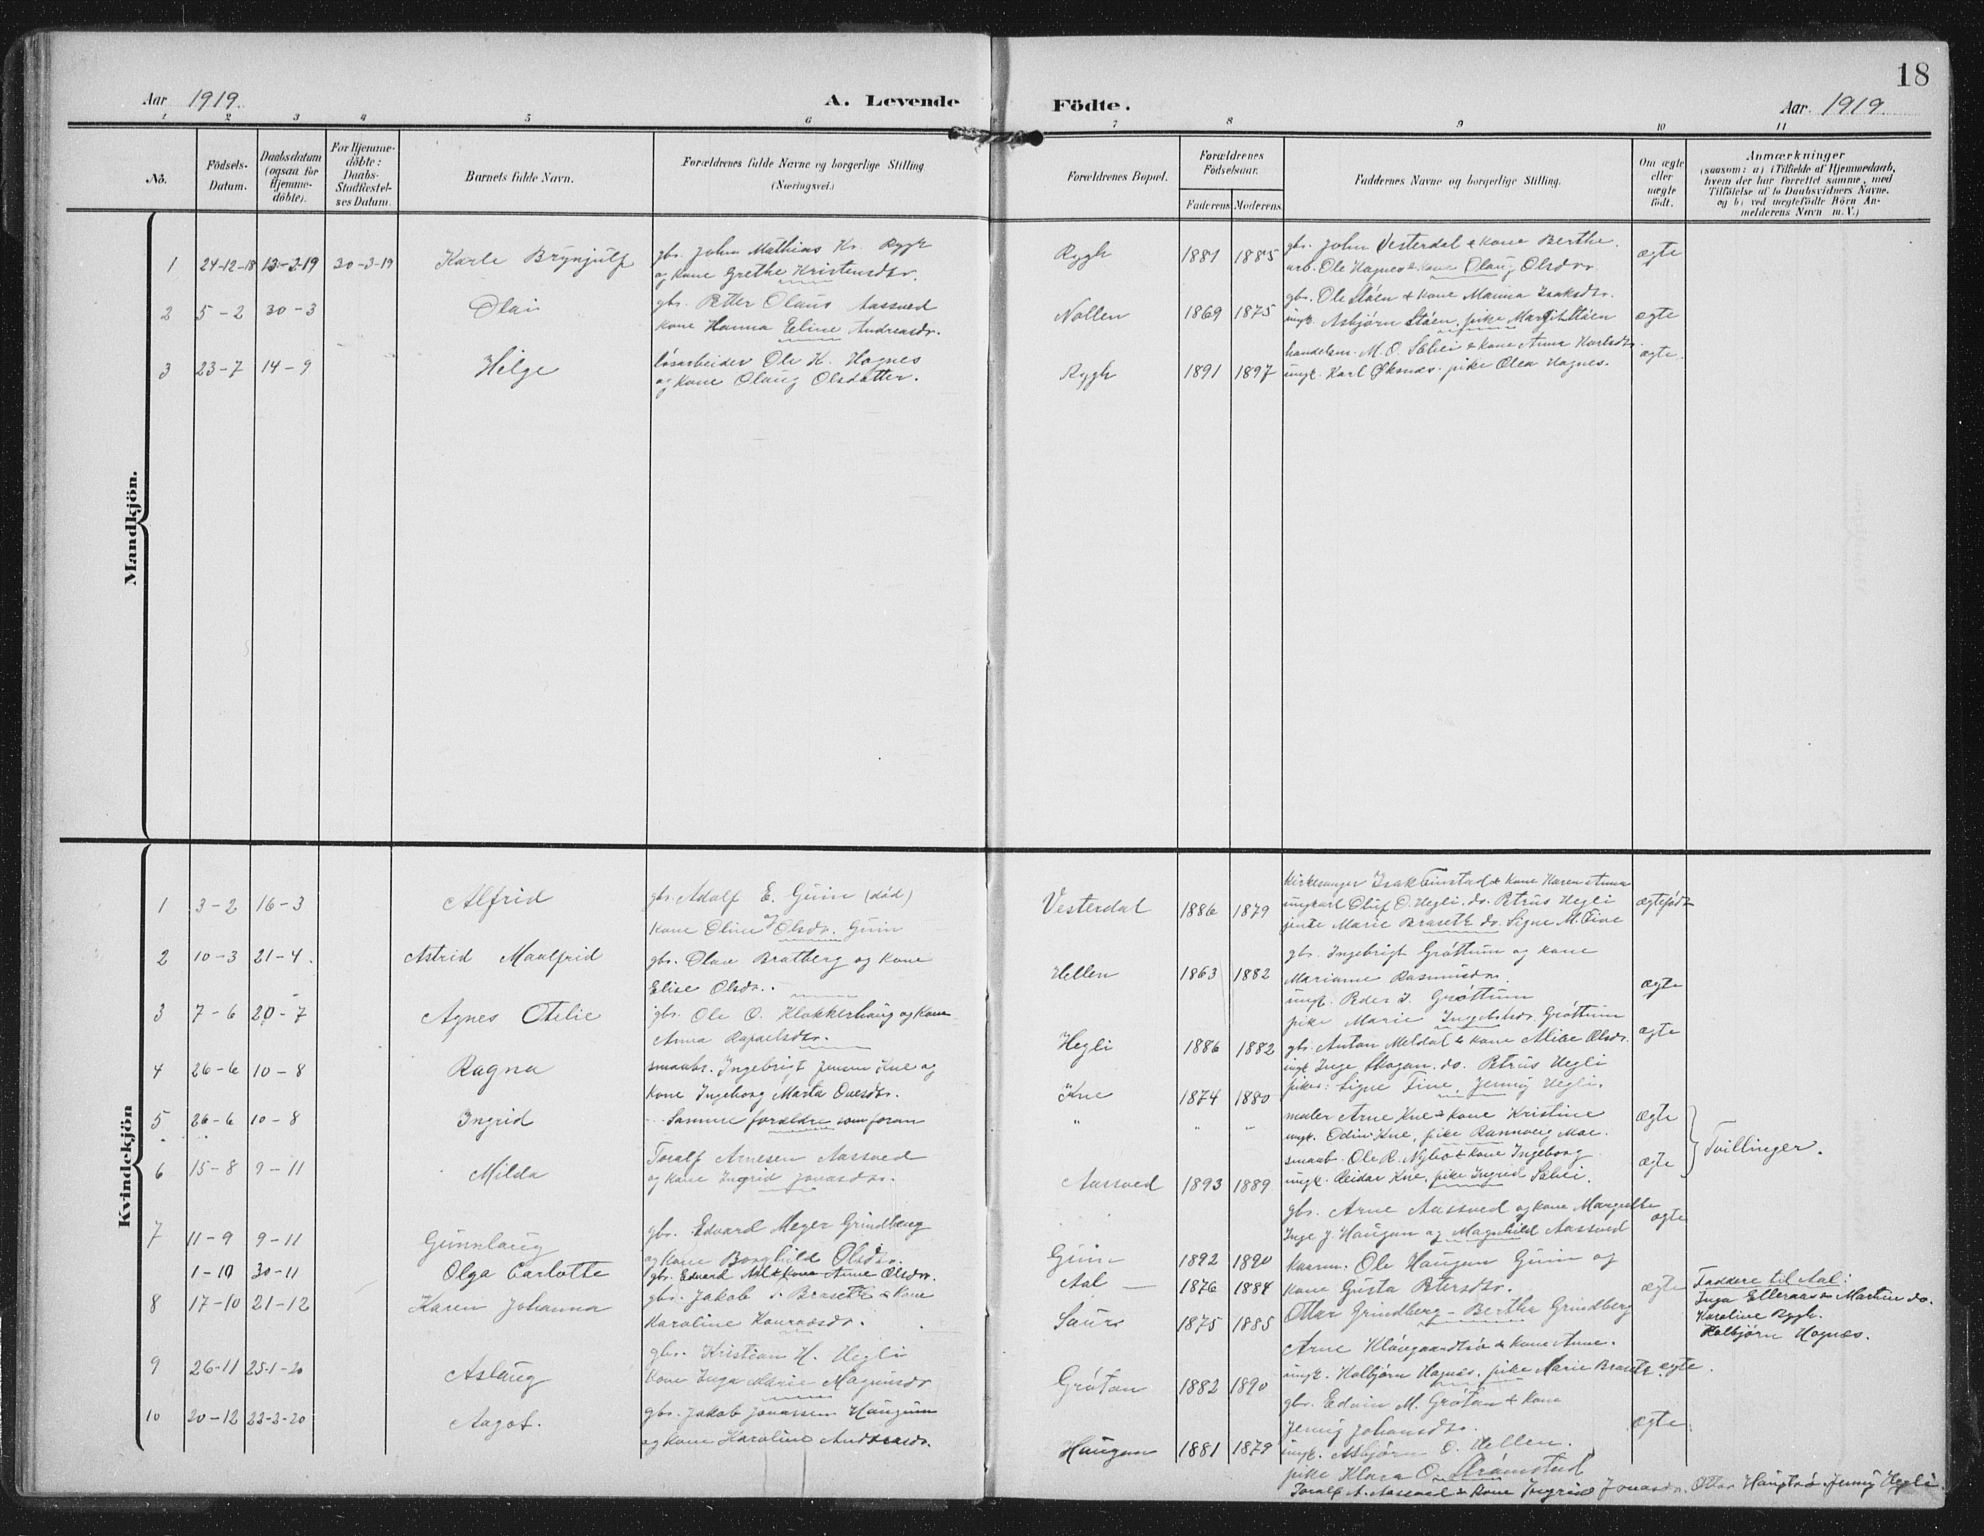 18
Aar 1919.
A. Levende
Födte.
Aar. 1919.
1 2 3 4 5 6 7 8 9 10 11
Nô. Födsels-Datum. Daabsdatum (ogsaa for Hjemmedöbte). For Hjemmedöbte: Daabs-Stadfæstelses Datum. Barnets fulde Navn. Forældrenes fulde Navne og borgerlige Stilling (Næringsvei.) Forældrenes Bopæl. Forældrenes Födselsaar. Faderens Moderens Faddernes Navne og borgerlige Stilling. Om ægte eller uægte födt. Anmærkninger (saasom: a) i Tilfælde af Hjemmedaab, hvem der har forrettet samme, med Tilföielse af to Daabsvidners Navne, og b) ved uægtefödte Börn Anmelderens Navn m. V.)
Mandkjön.
1 24-12-18 13-3-19 30-3-19 Karle Brynjulf gbr. John Mathias Kr. Rygh Rygh 1881 1885 gbr. John Vesterdal & kone Berthe. ægte
og kone Grethe Kristensdtr. arb. Ole Hagnes & kone Olaug Olsdtr.
2 5-2 30-3 Olai gbr. Petter Olaus Aassved Nollen 1869 1875 gbr. Ole Stöen & kone Manna Isaksdtr. ægte
kone Hanna Eline Andreasdr. ungk. Asbjørn Støen, pike Margit Støen
3 23-7 14-9 Helge løsarbeider Ole K. Hagnes Rygh 1891 1897 handelsm. M. O. Selnei & kone Anna Karlsdtr. ægte.
og kone Olaug Olsdatter. ungk. Karl Øksnes. pike Olea Hagnes.
Kvindekjön
1 3-2 16-3 Alfrid gbr. Adolf E. Guin (død) Vesterdal 1886 1879 kirkesanger Isak Finstad & kone Karen Anna ægtefödt
kone Oline Olsdr. Guin ungkarl Oluf O. Hegli. do. Petrus Hegli
jente Marie Braseth do. Signe M. Fine
2 10-3 21-4. Astrid Maalfrid gbr. Olav Bratberg og kone Hellen 1863 1882 gbr. Ingebrigt Grøttum og kone ægte
Elise Olsdr. Marianne Rasmusdr.
ungk. Peder I. Grøttum
pike Marie Grøttum
3 7-6 20-7 Agnes Otelie gbr. Ole O. Klokkerhaug og kone Hegli 1886 1882 gbr. Anton Meldal & kone Olsdr. ægte
Anna Rapaelsdtr. ungk Inge Skogan. do. Petrus Hegli
piker: Signe Fine, Jenny Hegli.
4 26-6 10-8 Ragna smaabr. Ingebrigt Jensen Kne og Kne 1874 1880 maler Arne Kne & kone Kristine ægte
kone Ingeborg Marta Ovesdtr. ungk. Odin Kne, pike Rannveig Moe.
5 26-6 10-8 Ingrid Samme forældre som foran " " " smaab. Ole R. Nybø & kone Ingeborg ægte Tvillinger.
ungk. Reidar Kne, pike Ingrid Selnei.
6 15-8 9-11 Milda Toralf Arnesen Aassved Aassved 1893 1889 gbr. Arne Aassved og kone Margrethe ægte
og kone Ingrid Jonasdr. Inge J. Haugan og Magnhild Aassved
7 11-9 9-11 Gunnlaug gbr. Edvard Meyer Grindberg Guin 1892 1890 Ole Haugan Guin og
og kone Borghild Olsdtr. kone Gusta Petersdtr.
1-10 30-11 Olga Carlotte gbr. Edvard Aal & kone Anne Olsdr. Aal 1876 1884 ægte Faddere til Aal:
8 17-10 21-12 Karen Johanna gbr. Jakob Braseth & kone Saurs 1875 1885 Ottar Grindberg - Berthe Grindberg Inga Elleraas & Martin do.
Karoline Konradsdr. Arne & kone Anne. Karoline Rygh.
ungk. Kolbjørn Hagnes, pike Marie Braseth. ægte. Kolbjørn Hagnes.
9 26-11 25-1-20 Aslaug gbr. Kristian H. Hegli Grøtan 1882 1890 gbr. Edvin M. Grøtan & kone ægte.
kone Inga Marie Magnusdr Jenny Johansdtr.
ungk. Asbjørn O. Hellen.
pike Klara O. Strømstad
10 20-12 22-2-20 Aagot. gbr. Jakob Jonassen Haugan Haugan 1881 1879 Toralf A. Aassved & kone Ingrid Jonasdr. Ottar Haugtrø. Jenny Hegli.
og kone Karoline Andreasdr.